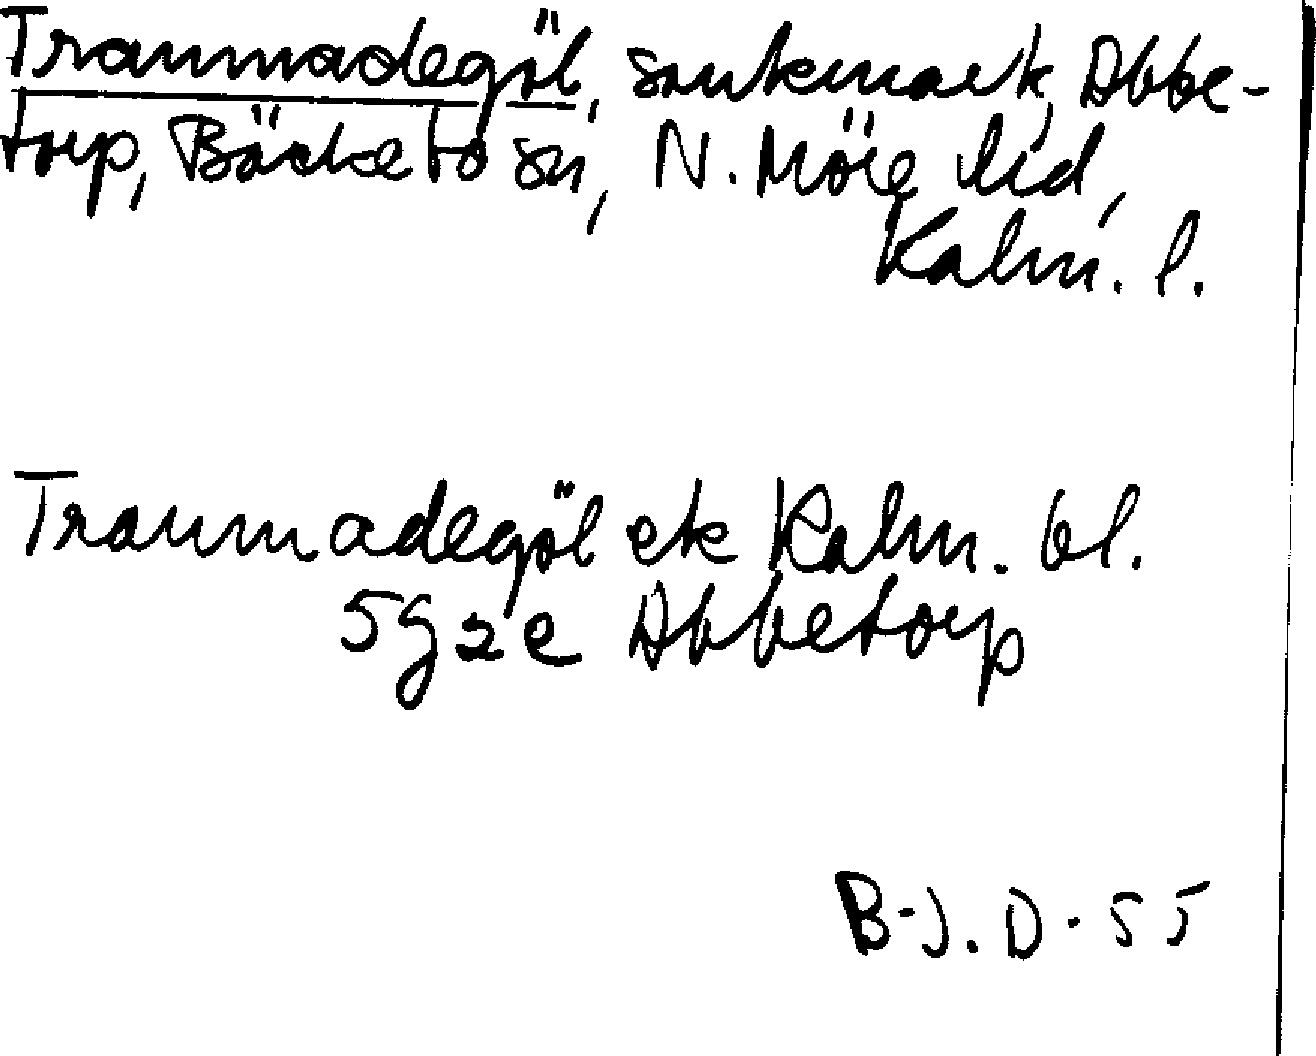 Tranmadegöl, sankmark, Abbe-
torp, Bäckebo sn, N. Möre hd,
Kalm. l.
Tranmadegöl ek Kalm. bl.
5g2e Abbetorp
B-J. D-55